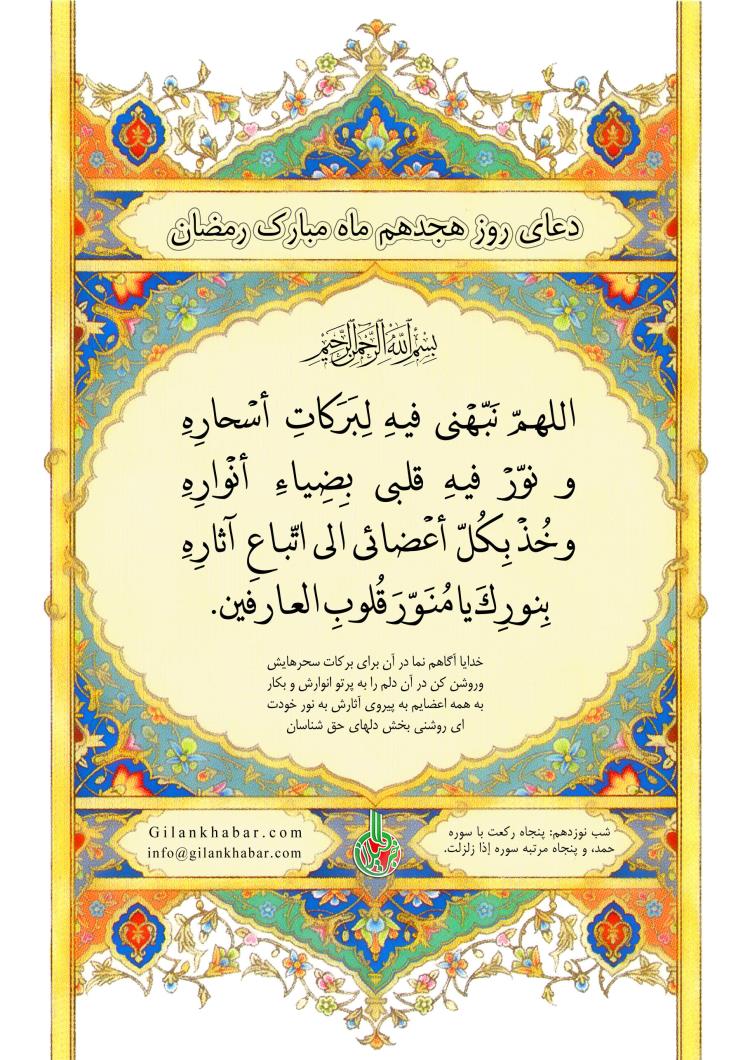 دعای روز هجدهم ماه مبارک رمضان
بِسْمِ اللَّهِ الرَّحْمَنِ الرَّحِيمِ
اللهمّ نَبّهْنی فیهِ لِبَرَکاتِ أسْحارِهِ
و نوّرْ فیهِ قلبی بِضِیاءِ أنْوارِهِ
وخُذْ بِکُلّ أعْضائی الی اتّباعِ آثارِهِ
بِنورِكَ یا مُنَوّرَ قُلوبِ العارفین.
خدایا آگاهم نما در آن برای برکات سحرهایش
وروشن کن در آن دلم را به پرتو انوارش و بکار
به همه اعضایم به پیروی آثارش به نور خودت
ای روشنی بخش دلهای حق شناسان
شب نوزدهم: پنجاه رکعت با سوره
حمد، و پنجاه مرتبه سوره إذا زلزلت.
Gilankhabar.com
info@gilankhabar.com